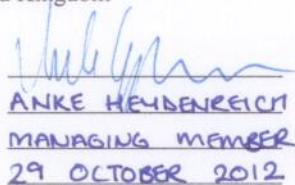 ANKE HEYDENREICH
MANAGING MEMBER
29 OCTOBER 2012